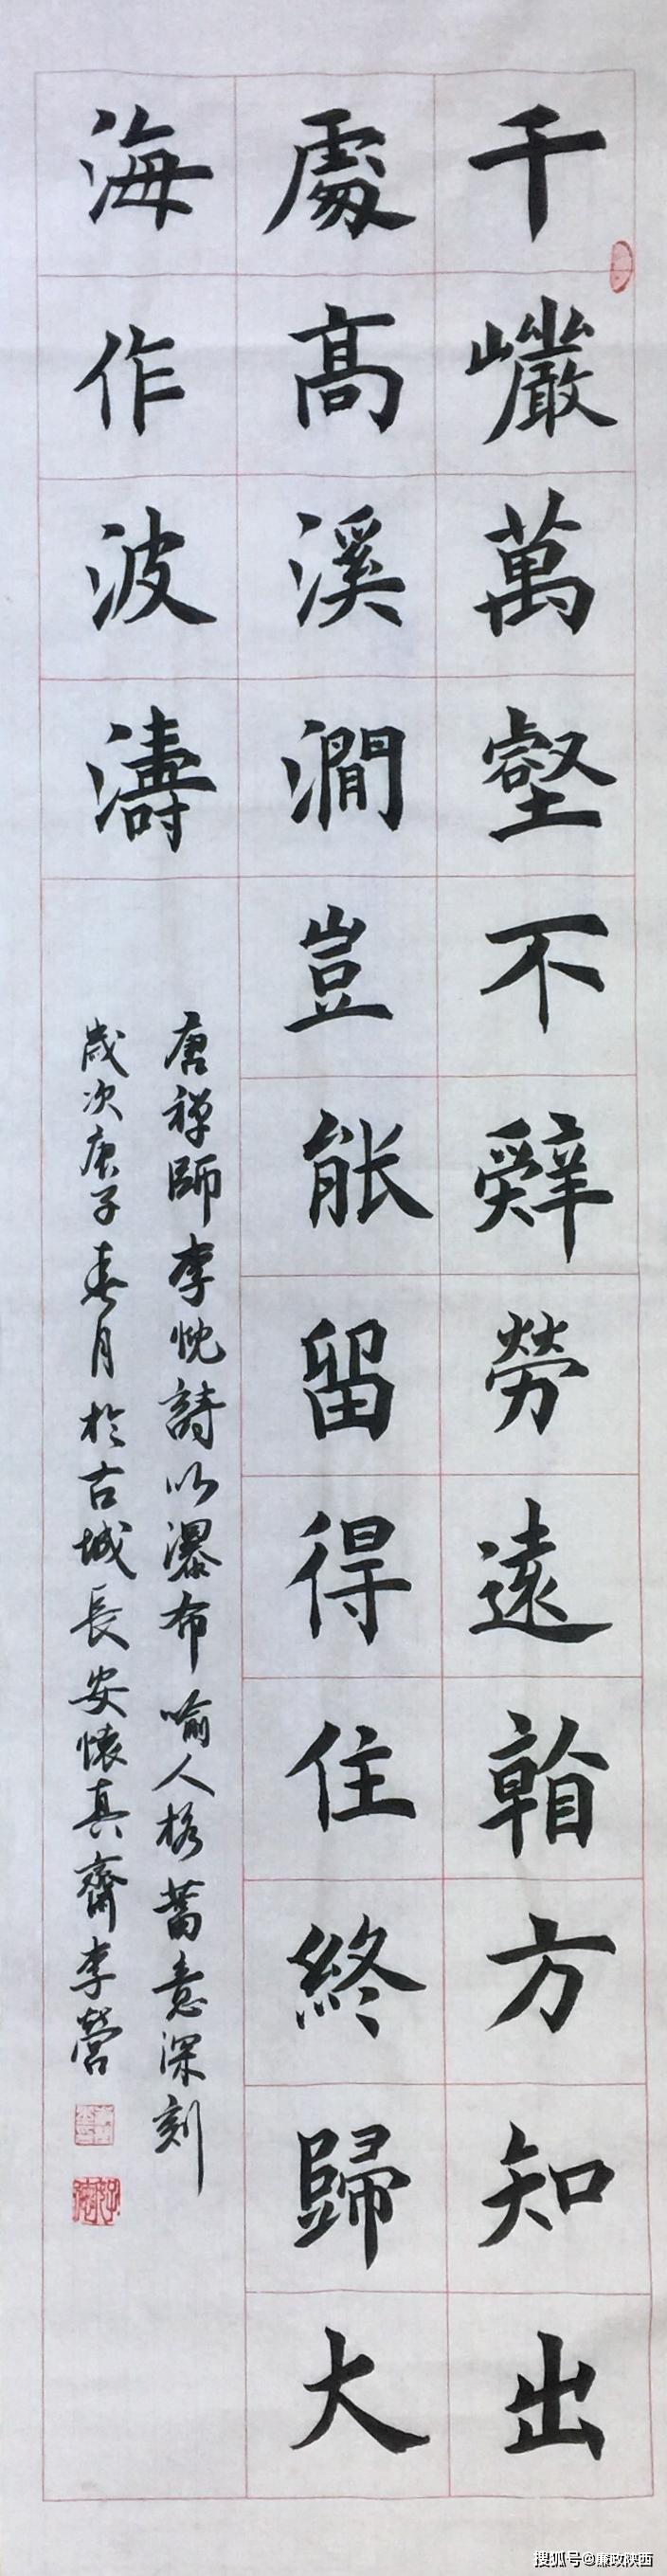 千巗萬壑不辤勞遠看方知出
處高溪澗豈能留得住終歸大
海作波濤
唐禅師李忱詩以瀑布喻人格蓄意深刻
歲次庚子春月於古城長安懷真齋李營
搜狐号@廉政陕西